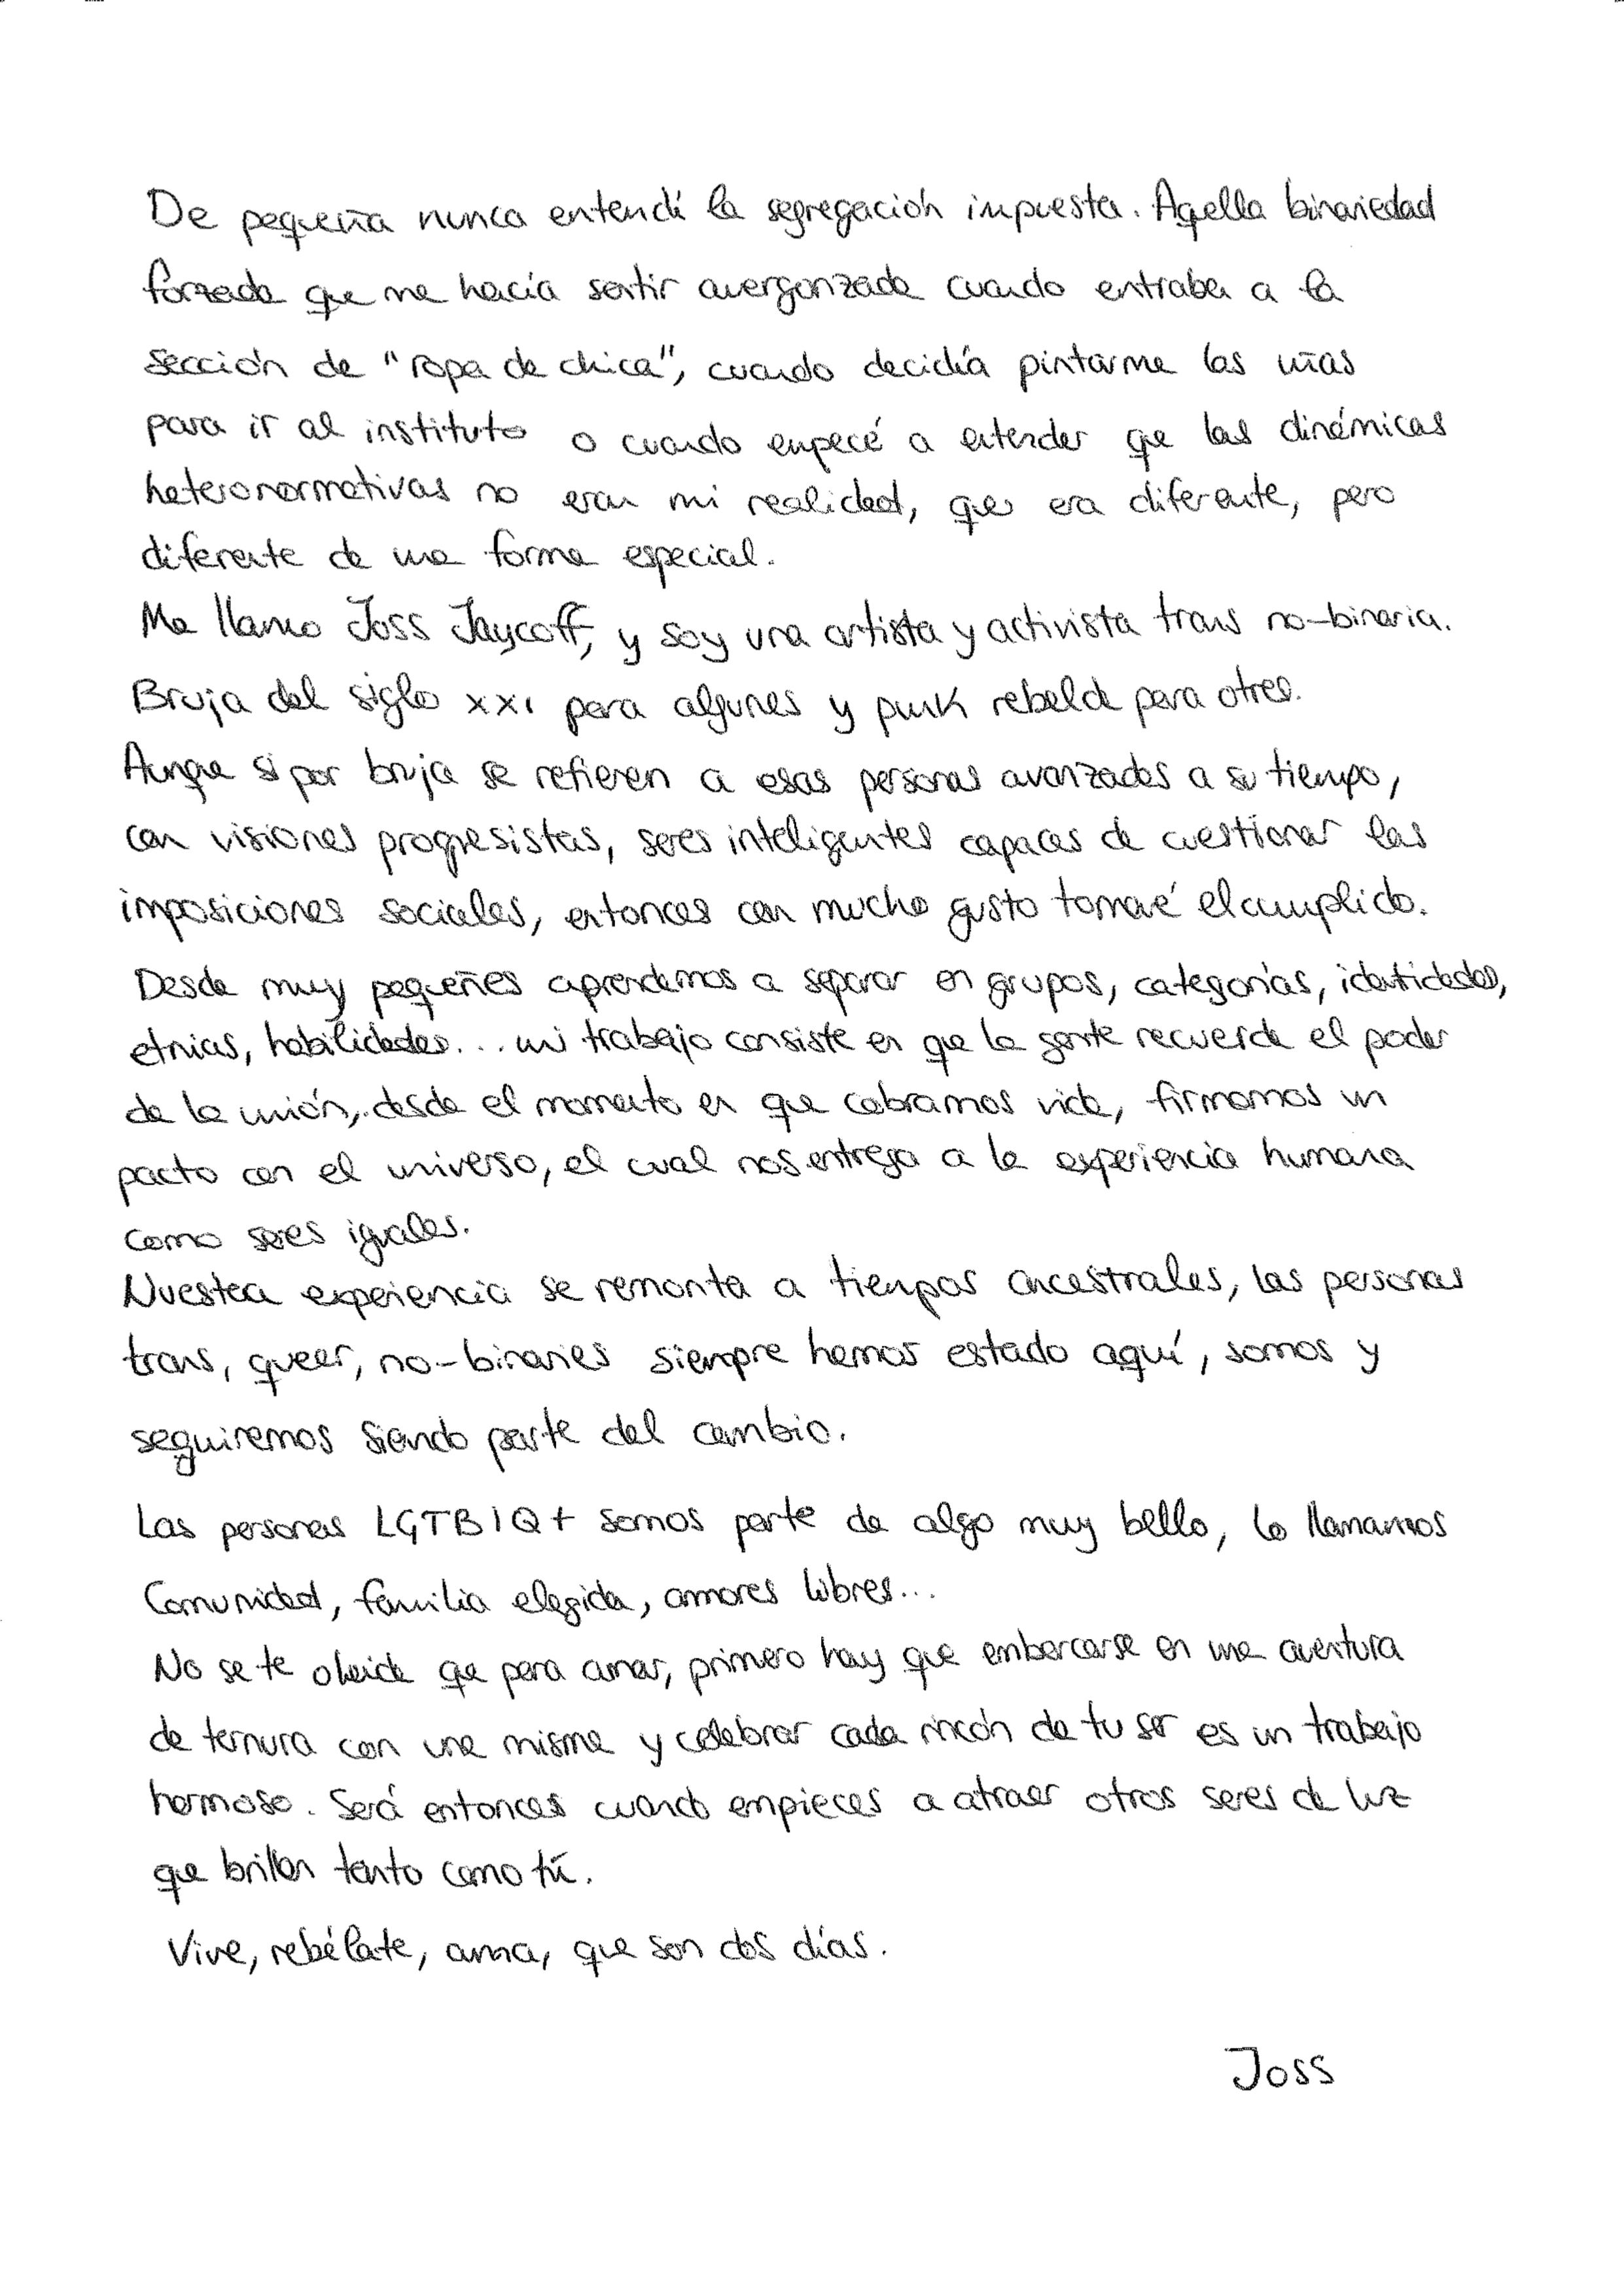 De pequeña nunca entendí la segregación impuesta. Aqella binariedad
forzada que me hacía sentir avergonzada cuando entraba a la
sección de "ropa de chica", cuando decidía pintarme las uñas
para ir al instituto o cuando empecé a entender que las dinámicas
heteronormativas no eran mi realidad, que era diferente, pero
diferente de una forma especial.
Me llamo Joss Jaycoff, y soy una artista y activista trans no-binaria.
Bruja del siglo xxi para algunes y punk rebelde para otres.
Aunque si por bruja se refieren a esas personas avanzadas a su tiempo,
con visiones progresistas, seres inteligentes capaces de cuestionar las
imposiciones sociales, entonces con mucho gusto tomaré el cumplido.
Desde muy pequeñes aprendemos a separar en grupos, categorías, identidades,
etnias, habilidades... mi trabajo consiste en que la gente recuerde el poder
de la unión, desde el momento en que cobramos vida, firmamos un
pacto con el universo, el cual nos entrega a la experiencia humana
como seres iguales.
Nuestra experiencia se remonta a tiempos ancestrales, las personas
trans, queer, no-binaries siempre hemos estado aquí, somos y
seguiremos siendo parte del cambio.
Las personas LGTBIQ+ somos parte de algo muy bello, lo llamamos
Comunidad, familia elegida, amores libres...
No se te olvide que para amar, primero hay que embarcarse en una aventura
de ternura con une misme y celebrar cada rincón de tu ser es un trabajo
hermoso. Será entonces cuando empieces a atraer otros seres de luz
que brillan tanto como tú.
Vive, rebélate, ama, que son dos días.
Joss